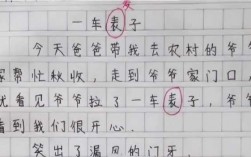 一车表子
今天爸爸带我去农村的爷爷
家帮忙秋收，走到爷爷家门口
就看见爷爷拉了一车表子，爷
看到我们很开心。
笑出了漏风的门牙。